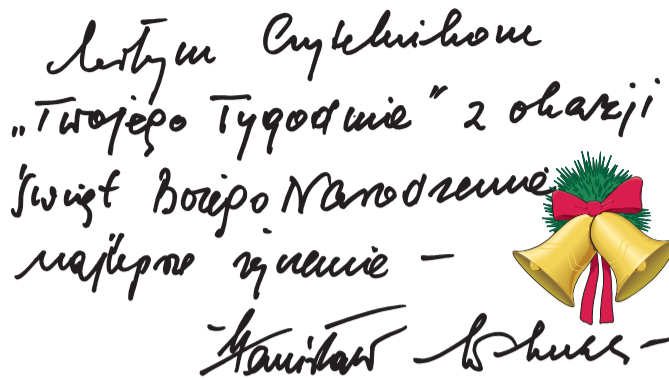 Czytelnikom
„Twojego Tygodnia” z okazji
Świąt Bożego Narodzenia
najlepsze życzenia –
Stanisław